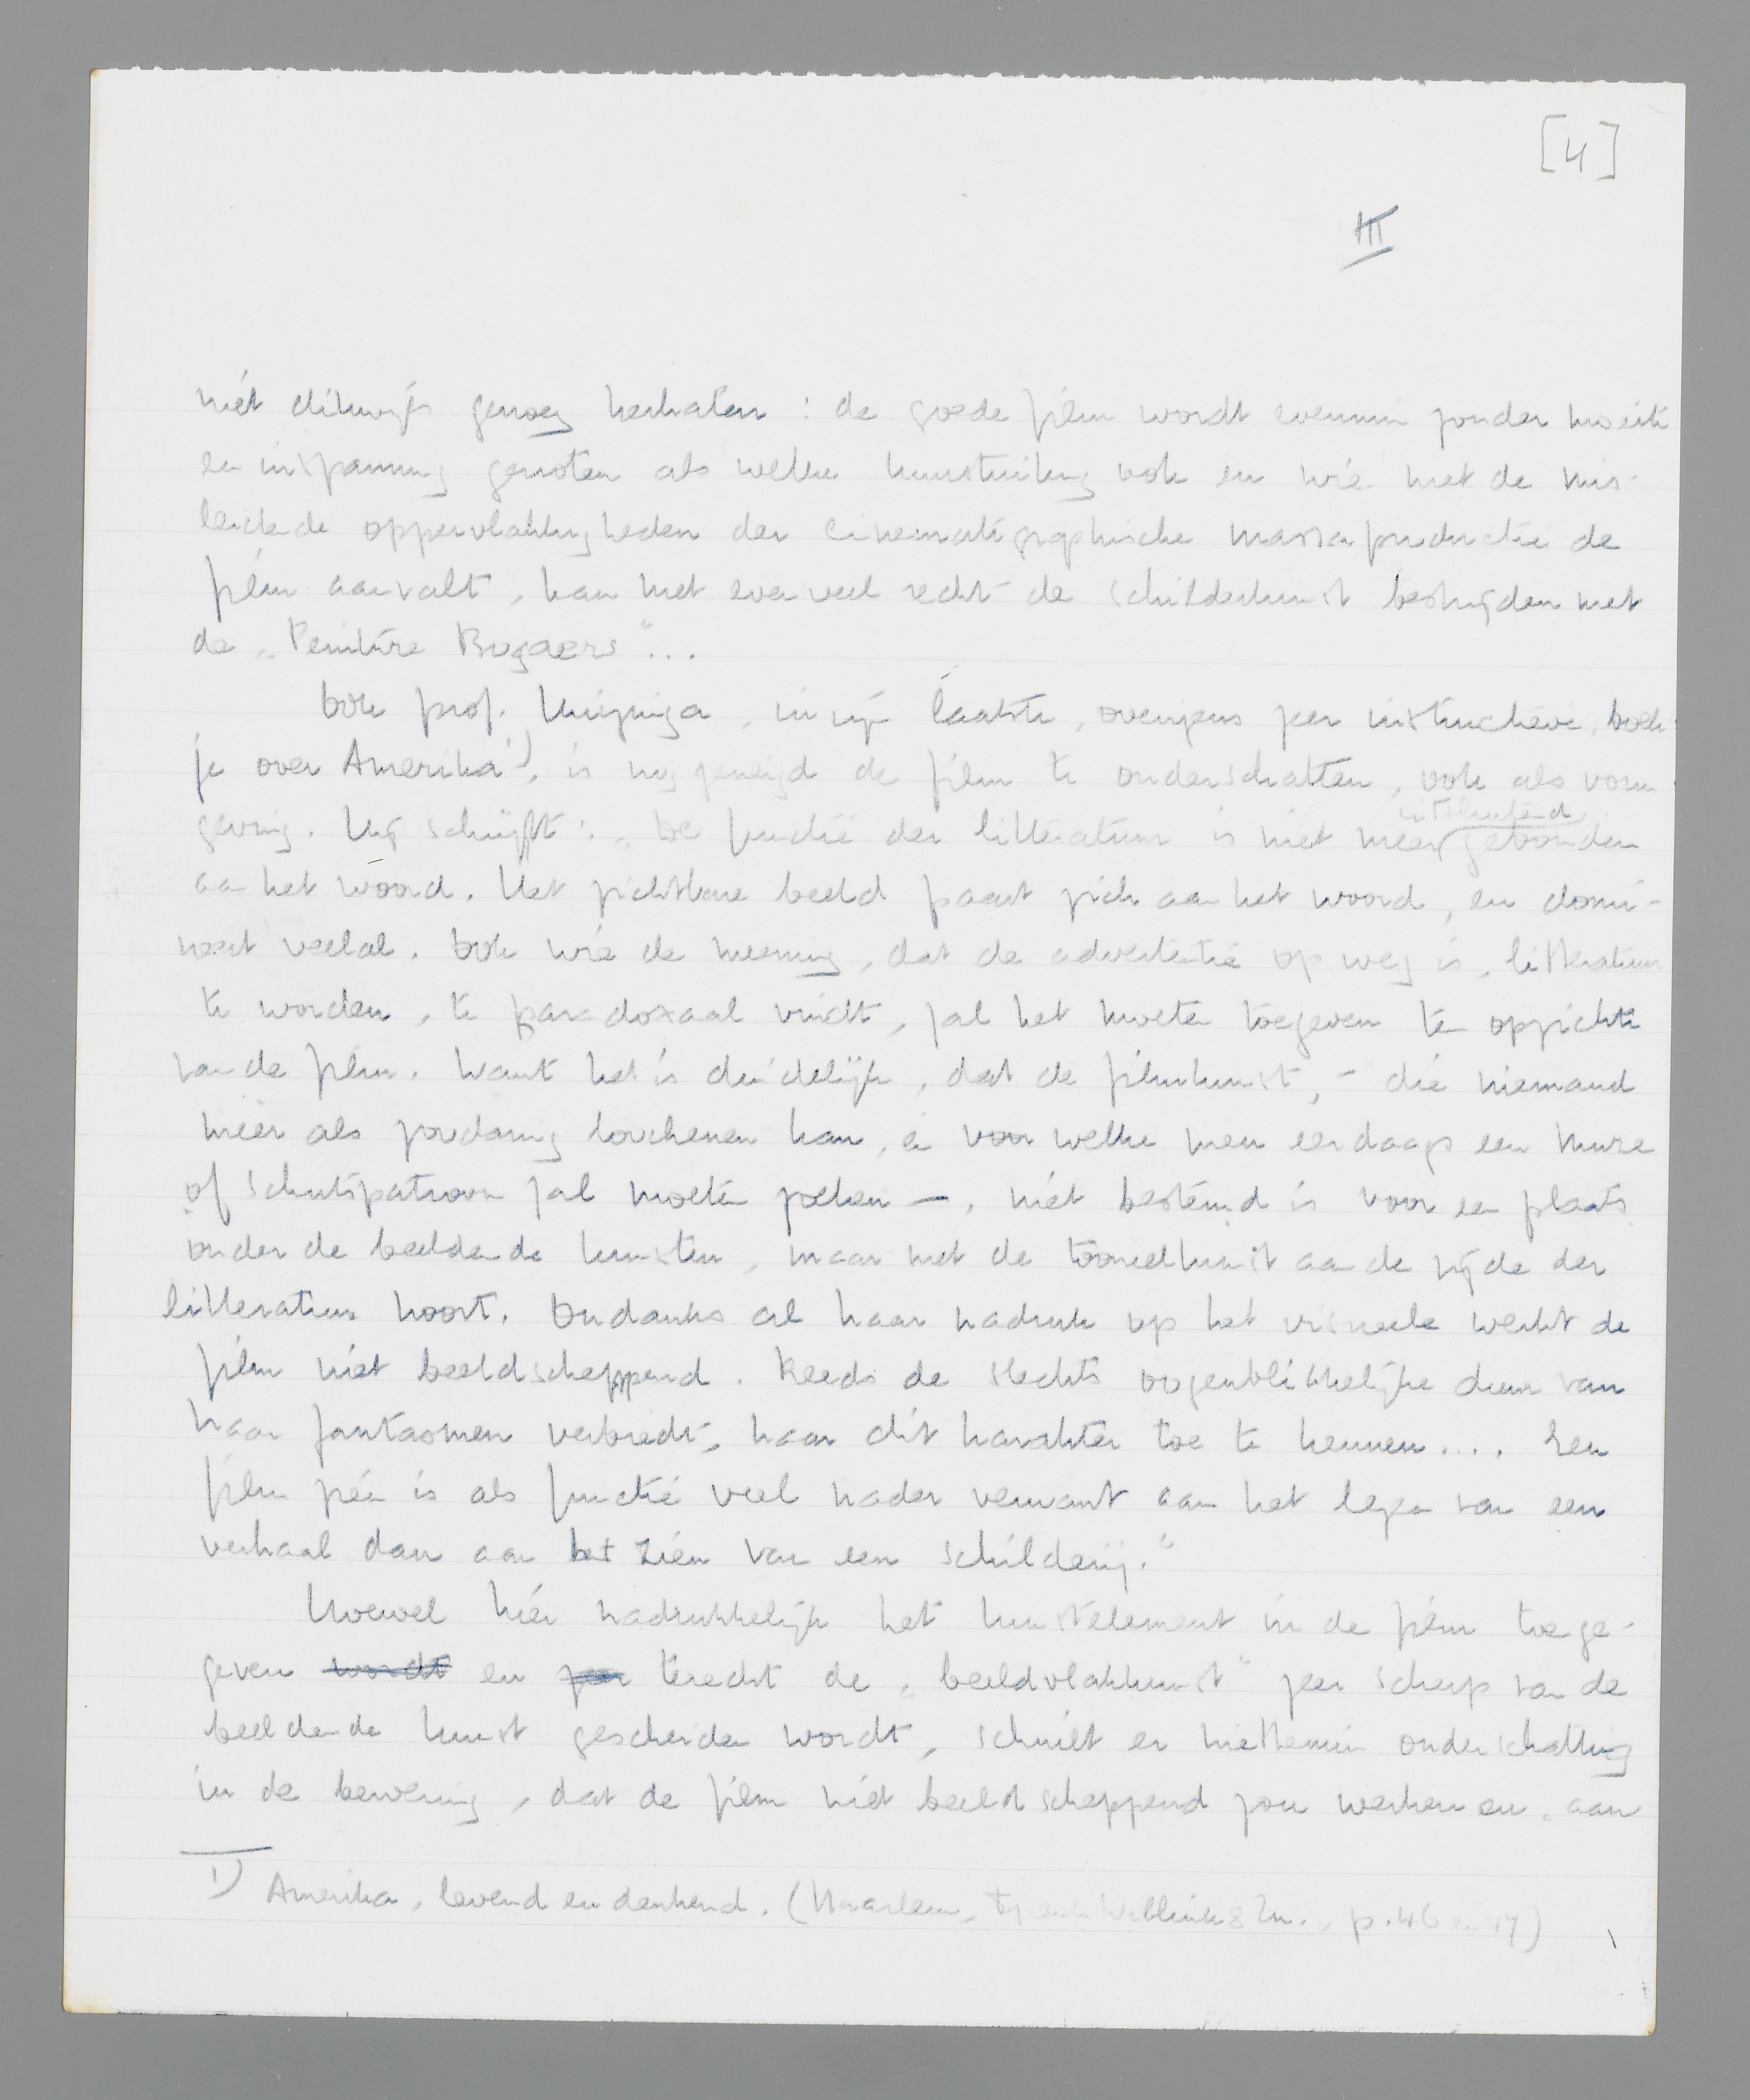 [4]
III
niet dikwijls genoeg herhalen: de goede film wordt evenmin zonder moeite
en inspanning genoten als welke kunstuiting ook en wie met de mis-
leidende oppervlakkigheden der cinematographische massaproductie de
film aanvalt, kan met evenveel recht de schilderkunst bestrijden met
de „Peinture Bogaers"...
Ook prof. Huizinga, in zijn laatste, overigens zeer instructieve, boek-
je over Amerika 1), is nog geneigd de film te onderschatten, ook als vorm-
geving. Hij schrijft: „De functie der litteratuur is niet meer uitsluitend gebonden
aan het woord. Het zichtbare beeld paart zich aan het woord, en domi-
neert veelal. Ook wie de meening, dat de advertentie op weg is, litteratuur
te worden, te paradoxaal vindt, zal het moeten toegeven ten opzichte
van de film. Want het is duidelijk, dat de filmkunst, - die niemand
meer als zoodanig loochenen kan, en voor welke men eerdaags een Muze
of schutspatroon zal moeten zoeken —, niet bestemd is voor een plaats
onder de beeldende kunsten, maar met de tooneelkunst aan de zijde der
litteratuur hoort. Ondanks al haar nadruk op het visueele werkt de
film niet beeldscheppend. Reeds de slechts oogenblikkelijke duur van
haar fantasmen verbiedt, haar dit karakter toe te kennen.... Een
film zien is als functie veel nader verwant aan het lezen van een
verhaal dan aan het zien van een schilderij."
Hoewel hier nadrukkelijk het kunstelement in de film toege-
geven wordt en zeer terecht de „beeldvlakkunst" zeer scherp van de
beeldende kunst gescheiden wordt, schuilt er niettemin onderschatting
in de bewering, dat de film niet beeldscheppend zou werken en „aan
1) Amerika, levend en denkend. (Haarlem, Tjeenk Willink & Zn., p. 46 en 47)